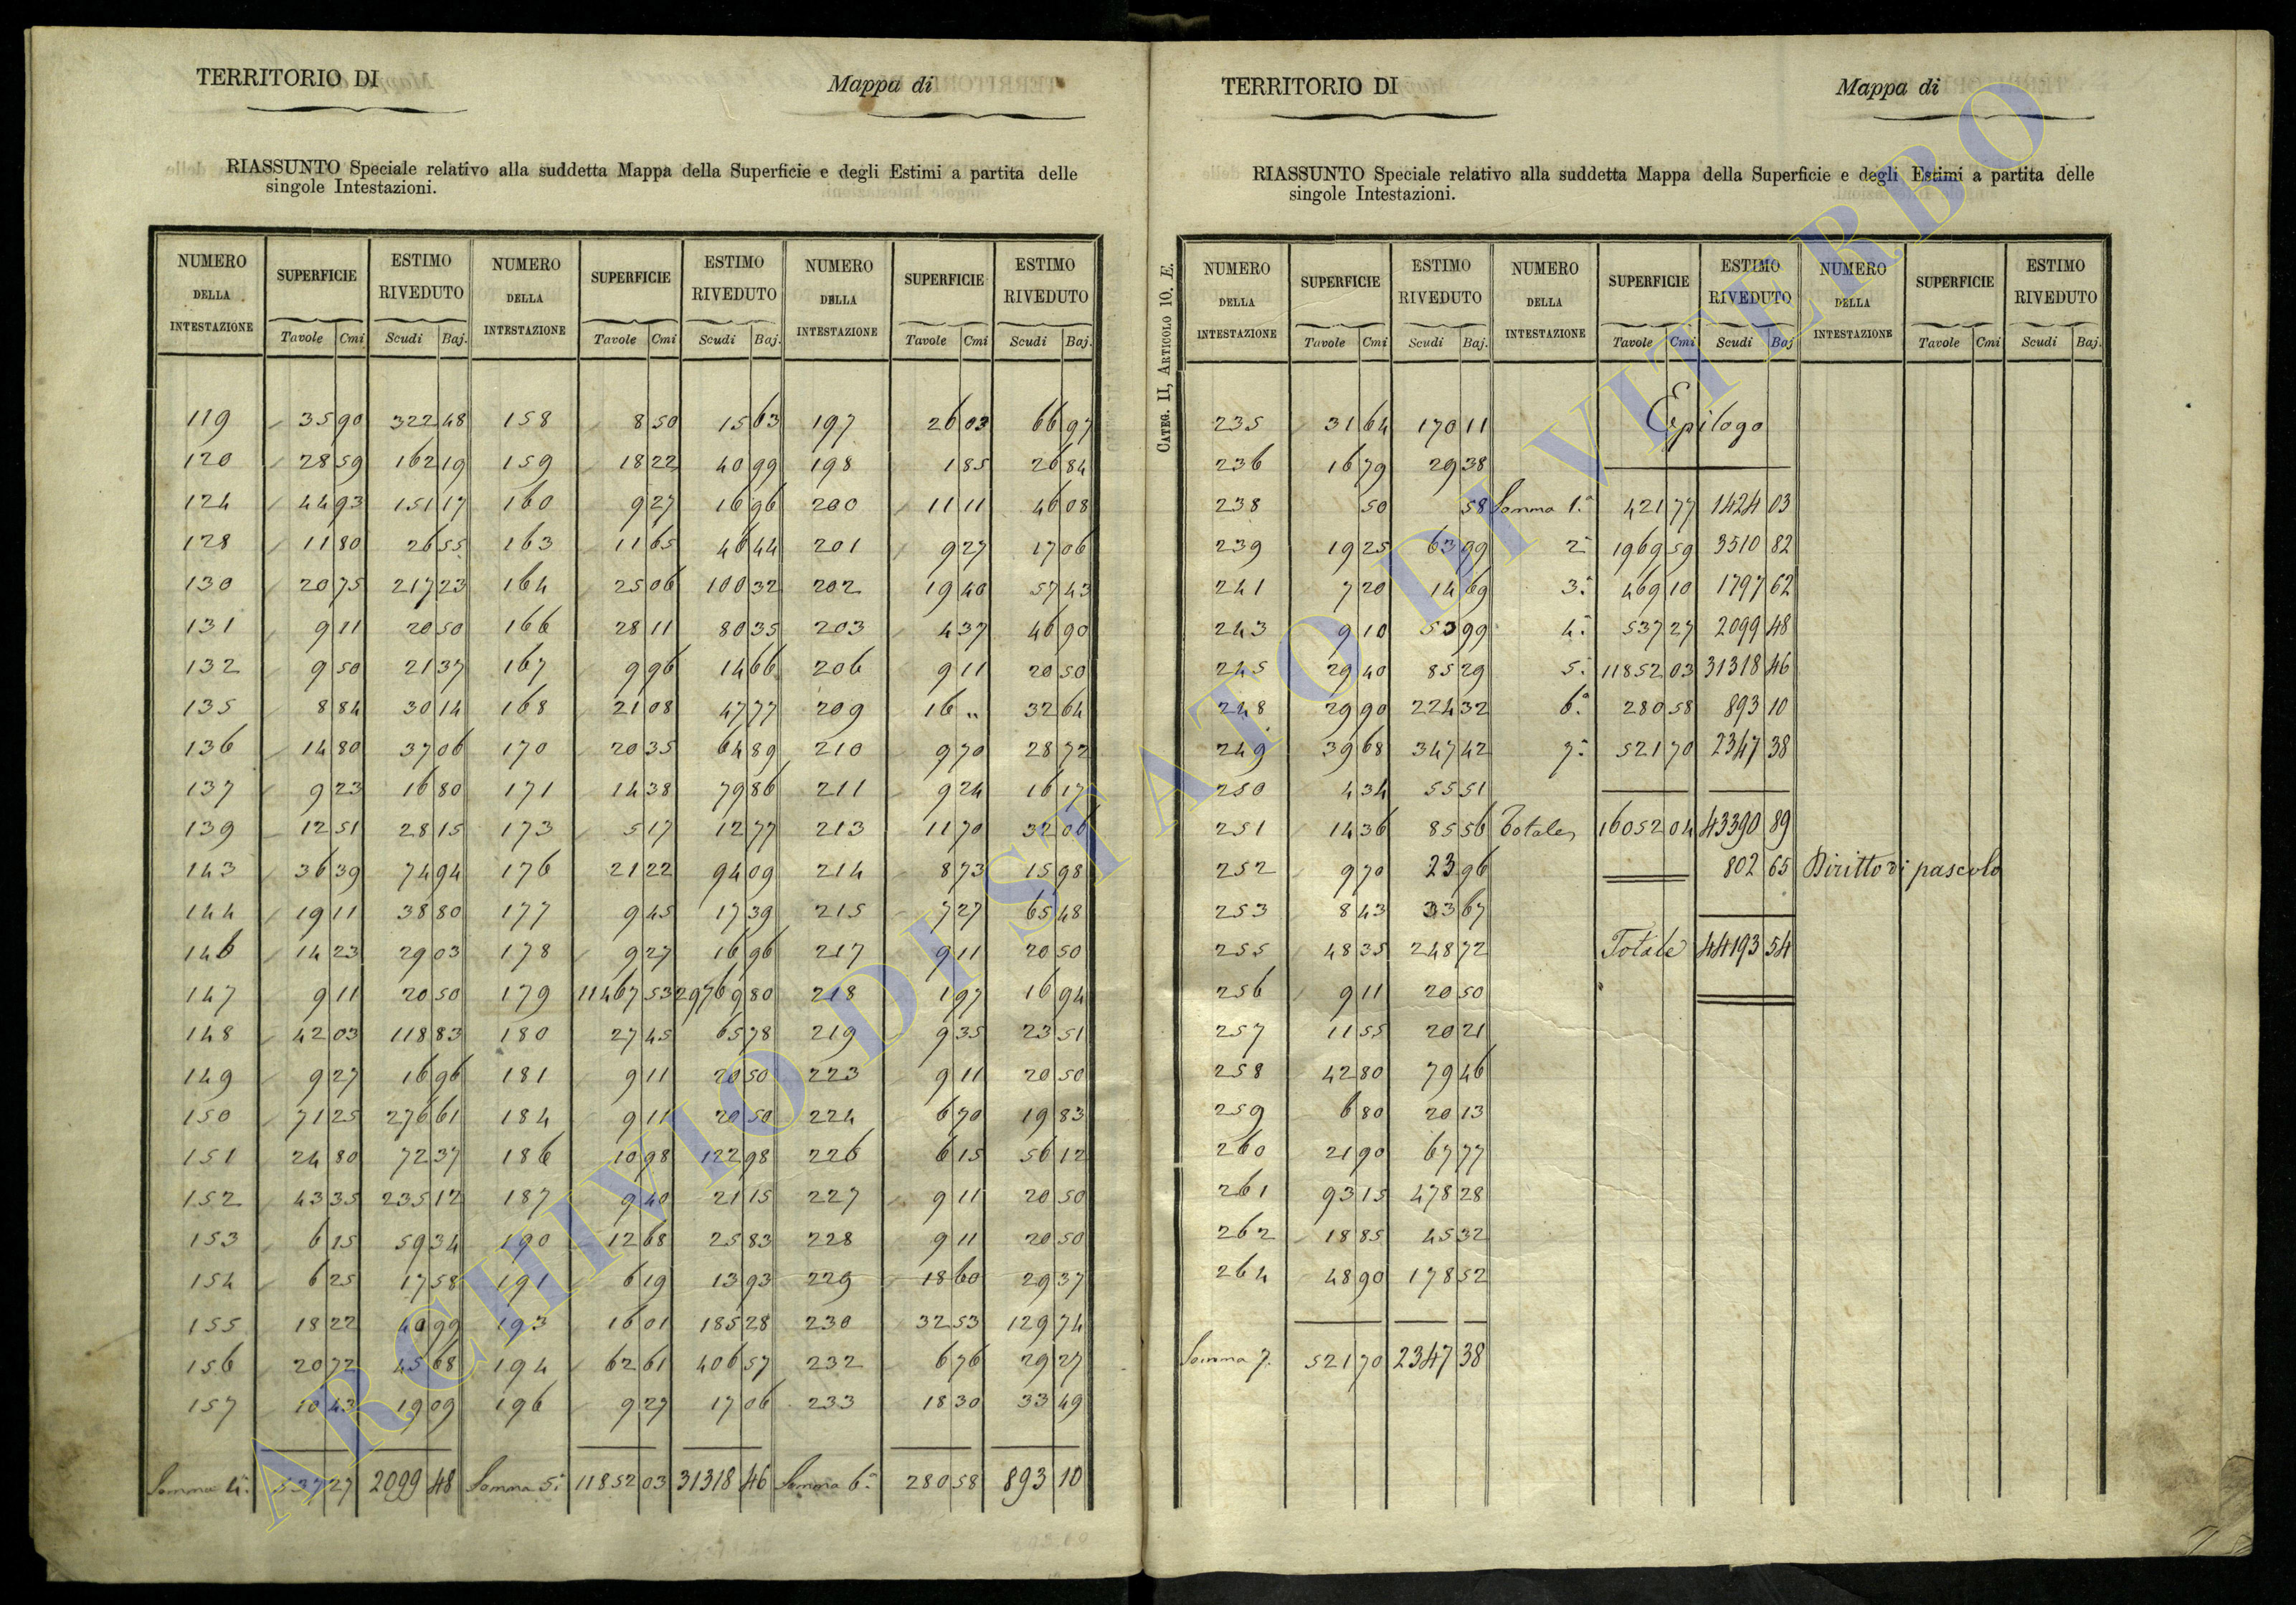 TERRITORIO DI Mappa di
RIASSUNTO Speciale relativo alla suddetta Mappa della Superficie e degli Estimi a partita delle
singole Intestazioni.
NUMERO DELLA INTESTAZIONE SUPERFICIE ESTIMO RIVEDUTO NUMERO DELLA INTESTAZIONE SUPERFICIE ESTIMO RIVEDUTO NUMERO DELLA INTESTAZIONE SUPERFICIE ESTIMO RIVEDUTO
Tavole Cmi Scudi Baj. Tavole Cmi Scudi Baj. Tavole Cmi Scudi Baj.
119 35 90 322 48 158 8 50 15 63 197 26 03 66 97
120 28 59 162 19 159 18 22 40 99 198 1 85 26 84
124 44 93 151 17 160 9 27 16 96 200 11 11 46 08
128 11 80 26 55 163 11 65 46 44 201 9 27 17 06
130 20 75 217 23 164 25 06 100 32 202 19 40 57 43
131 9 11 20 50 166 28 11 80 35 203 4 37 46 90
132 9 50 21 37 167 9 96 14 66 206 9 11 20 50
135 8 84 30 14 168 21 08 47 77 209 16 " 32 64
136 14 80 37 06 170 20 35 64 89 210 9 70 28 72
137 9 23 16 80 171 14 38 79 86 211 9 24 16 17
139 12 51 28 15 173 5 17 12 77 213 11 70 32 06
143 36 39 74 94 176 21 22 94 09 214 8 73 15 98
144 19 11 38 80 177 9 45 17 39 215 7 27 65 48
146 14 23 29 03 178 9 27 16 96 217 9 11 20 50
147 9 11 20 50 179 11467 53 29769 80 218 1 97 16 94
148 42 03 118 83 180 27 45 65 78 219 9 35 23 51
149 9 27 16 96 181 9 11 20 50 223 9 11 20 50
150 71 25 276 61 184 9 11 20 50 224 6 70 19 83
151 24 80 72 37 186 10 98 122 98 226 6 15 56 12
152 43 35 235 12 187 9 40 21 15 227 9 11 20 50
153 6 15 59 34 190 12 68 25 83 228 9 11 20 50
154 6 25 17 58 191 6 19 13 93 229 18 60 29 37
155 18 22 40 99 193 16 01 185 28 230 32 53 129 74
156 20 72 45 68 194 62 61 406 57 232 6 76 29 27
157 10 43 19 09 196 9 27 17 06 233 18 30 33 49
Somma 4.ª 537 27 2099 48 Somma 5.ª 11852 03 31318 46 Somma 6.ª 280 58 893 10
TERRITORIO DI Mappa di
RIASSUNTO Speciale relativo alla suddetta Mappa della Superficie e degli Estimi a partita delle
singole Intestazioni.
CATEG. II, ARTICOLO 10. E.
NUMERO DELLA INTESTAZIONE SUPERFICIE ESTIMO RIVEDUTO NUMERO DELLA INTESTAZIONE SUPERFICIE ESTIMO RIVEDUTO NUMERO DELLA INTESTAZIONE SUPERFICIE ESTIMO RIVEDUTO
Tavole Cmi Scudi Baj. Tavole Cmi Scudi Baj Tavole Cmi Scudi Baj.
235 31 64 170 11 Epilogo
236 16 79 29 38
238 50 58 Somma 1.ª 421 77 1424 03
239 19 25 63 99 2ª 1969 59 3510 82
241 7 20 14 69 3.ª 469 10 1797 62
243 9 10 53 99 4.ª 537 27 2099 48
245 29 40 85 29 5.ª 11852 03 31318 46
248 29 90 224 32 6.ª 280 58 893 10
249 39 68 347 42 7.ª 521 70 2347 38
250 4 34 55 51
251 14 36 85 56 Totale 16052 04 43390 89
252 9 70 23 96 802 65 Diritto di pascolo
253 8 43 33 67
255 48 35 248 72 Totale 44193 54
256 9 11 20 50
257 11 55 20 21
258 42 80 79 46
259 6 80 20 13
260 21 90 67 77
261 93 15 478 28
262 18 85 45 32
264 48 90 178 52
Somma 7. 521 70 2347 38
ARCHIVIO DI STATO DI VITERBO